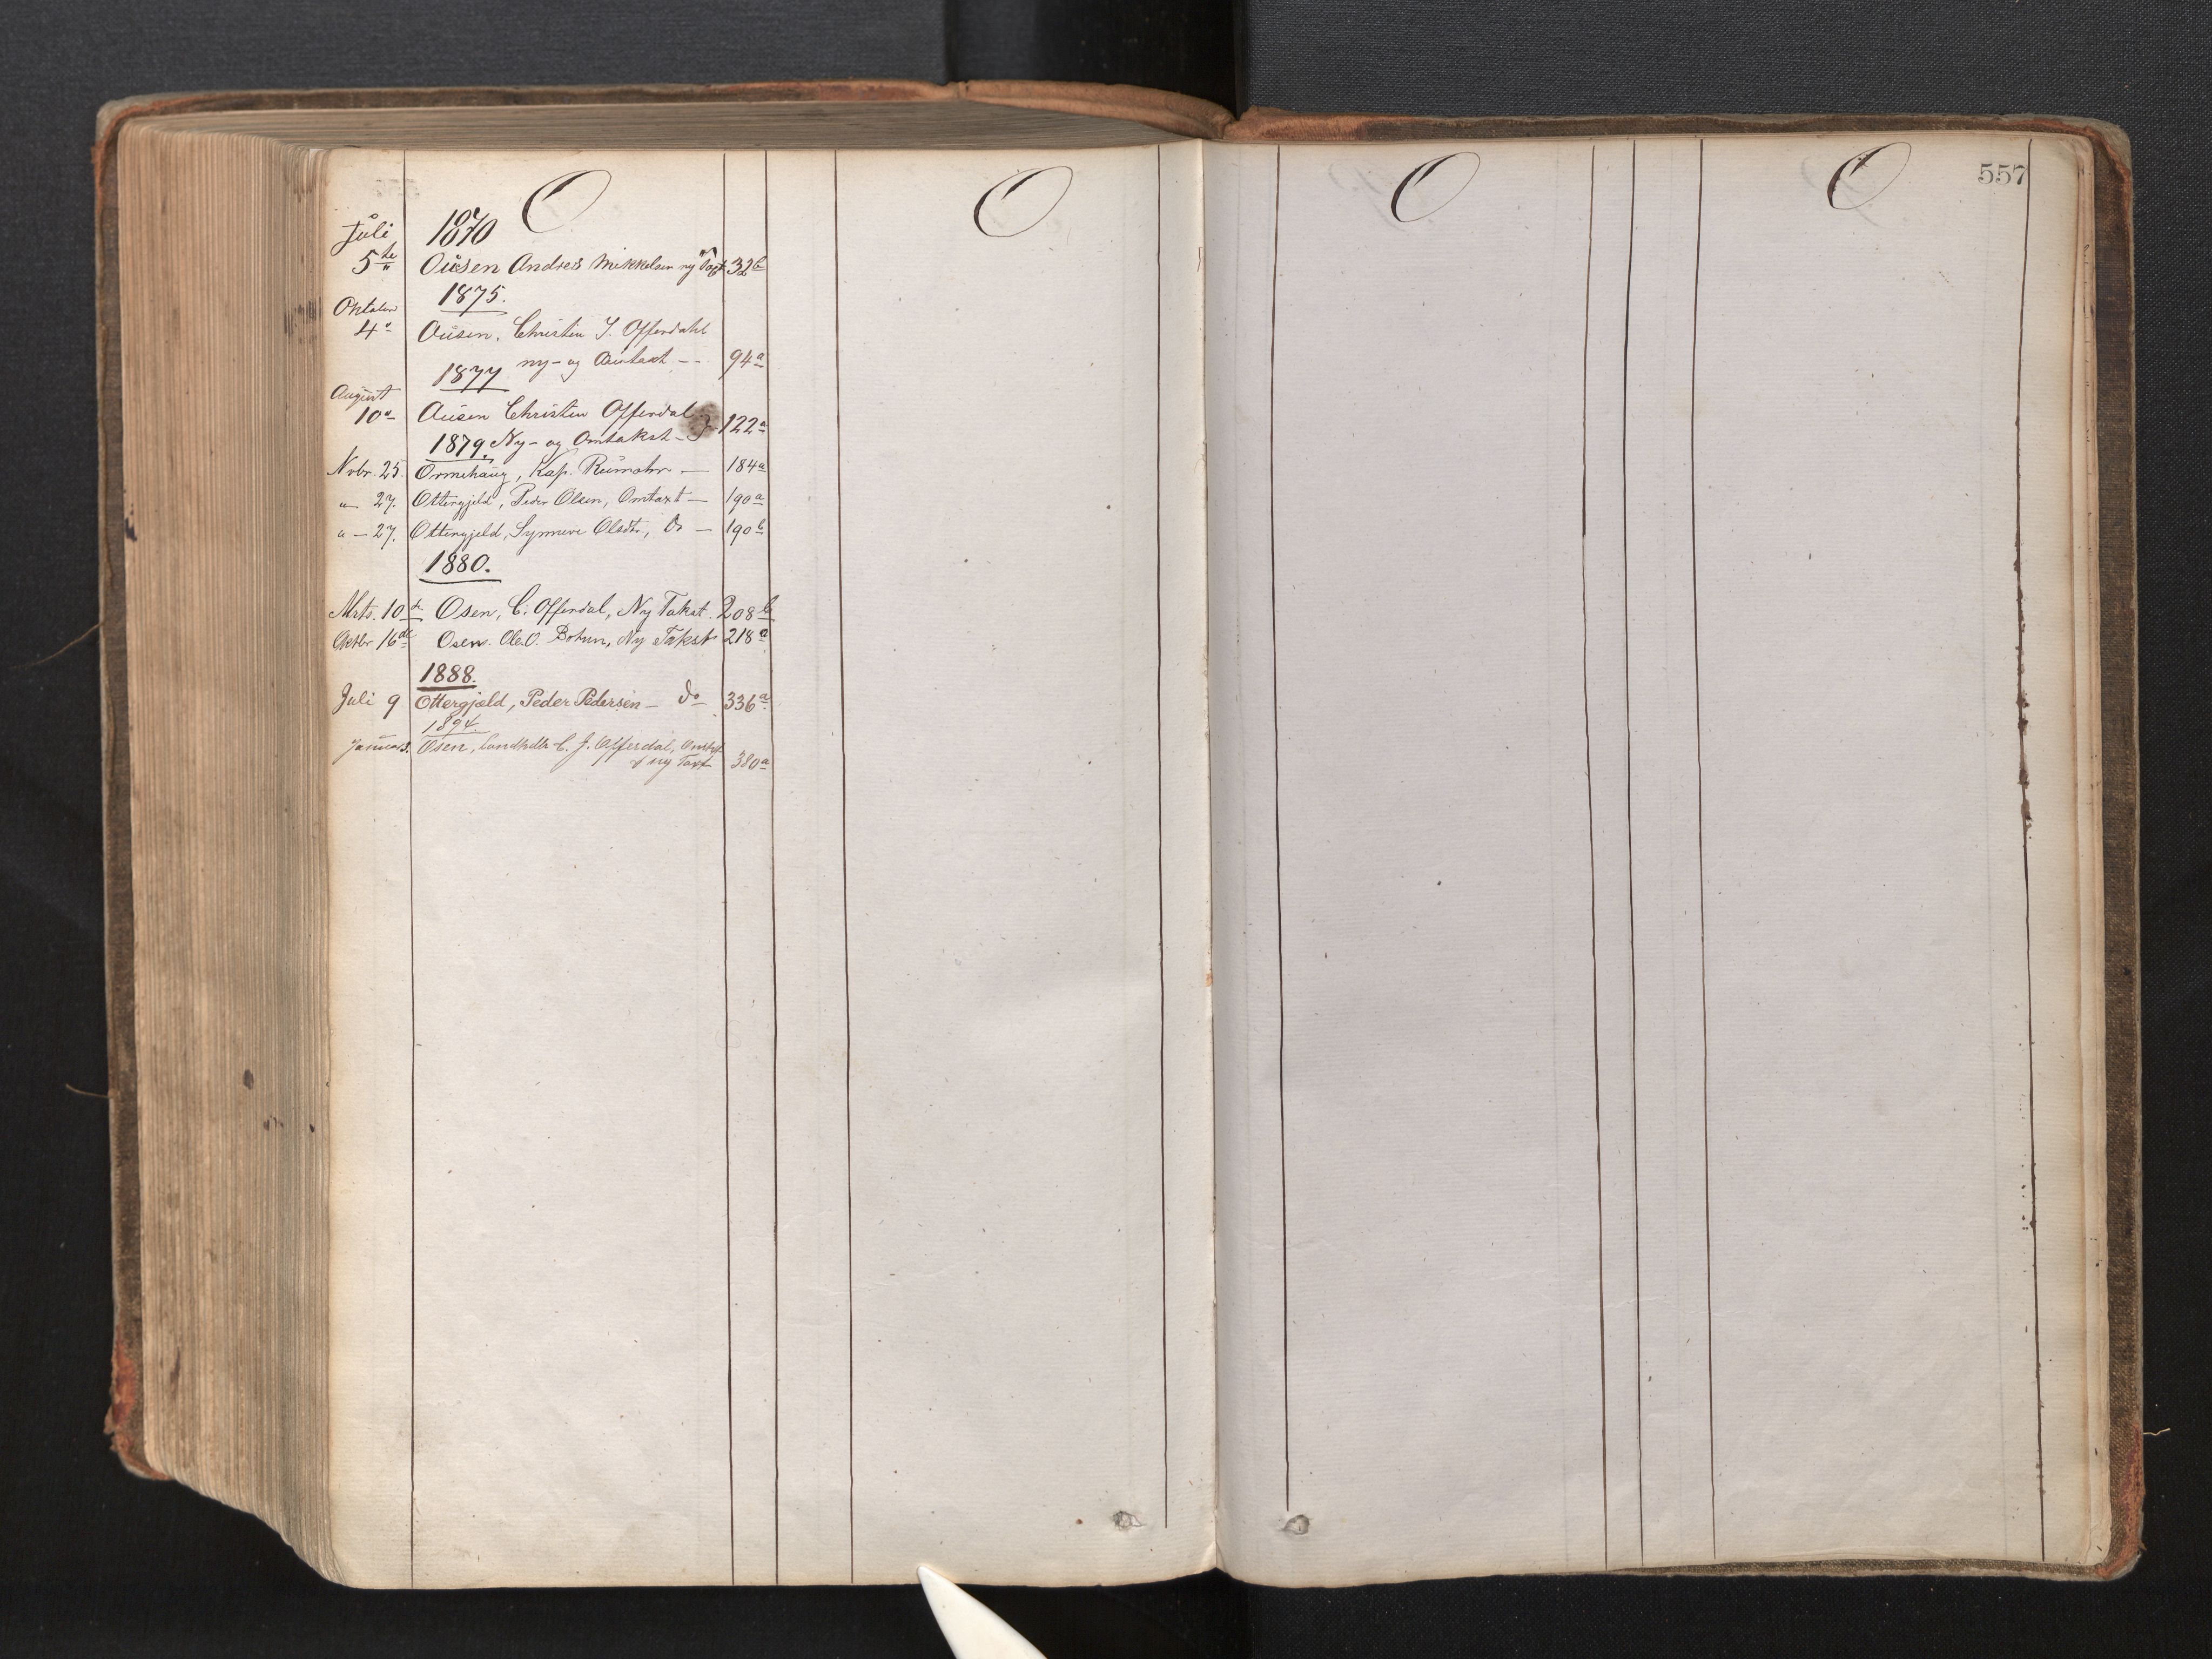 O
O
O
O
557
Juli 1870
5te Ousen Andres Mikkelsen ny Taxt 32b
1875.
Oktober
4de Ousen, Christen J. Offerdahl
ny- og Omtaxt -- 94a
1877
August
10de Ousen Christen Offerdal
Ny- og Omtakst - 122a
1879.
Nvbr. 25. Ormehaug, Kap. Rumohr — 184a
" 27. Ottergjeld, Peder Olsen, Omtaxt — 190a
" — 27. Ottergjeld, Synneve Olsdtr, Do — 190b
1880.
Mrts. 10de Osen, C. Offerdal, Ny Takst. 208b
Oktbr 16de Osen. Ole O. Botun, Ny Takst 218a
1888.
Juli 9 Ottergjeld, Peder Pedersen — do 336a
1894.
Januar 3. Osen, Landhdlr C. J. Offerdal, Omtaxt
& ny Taxt 380a